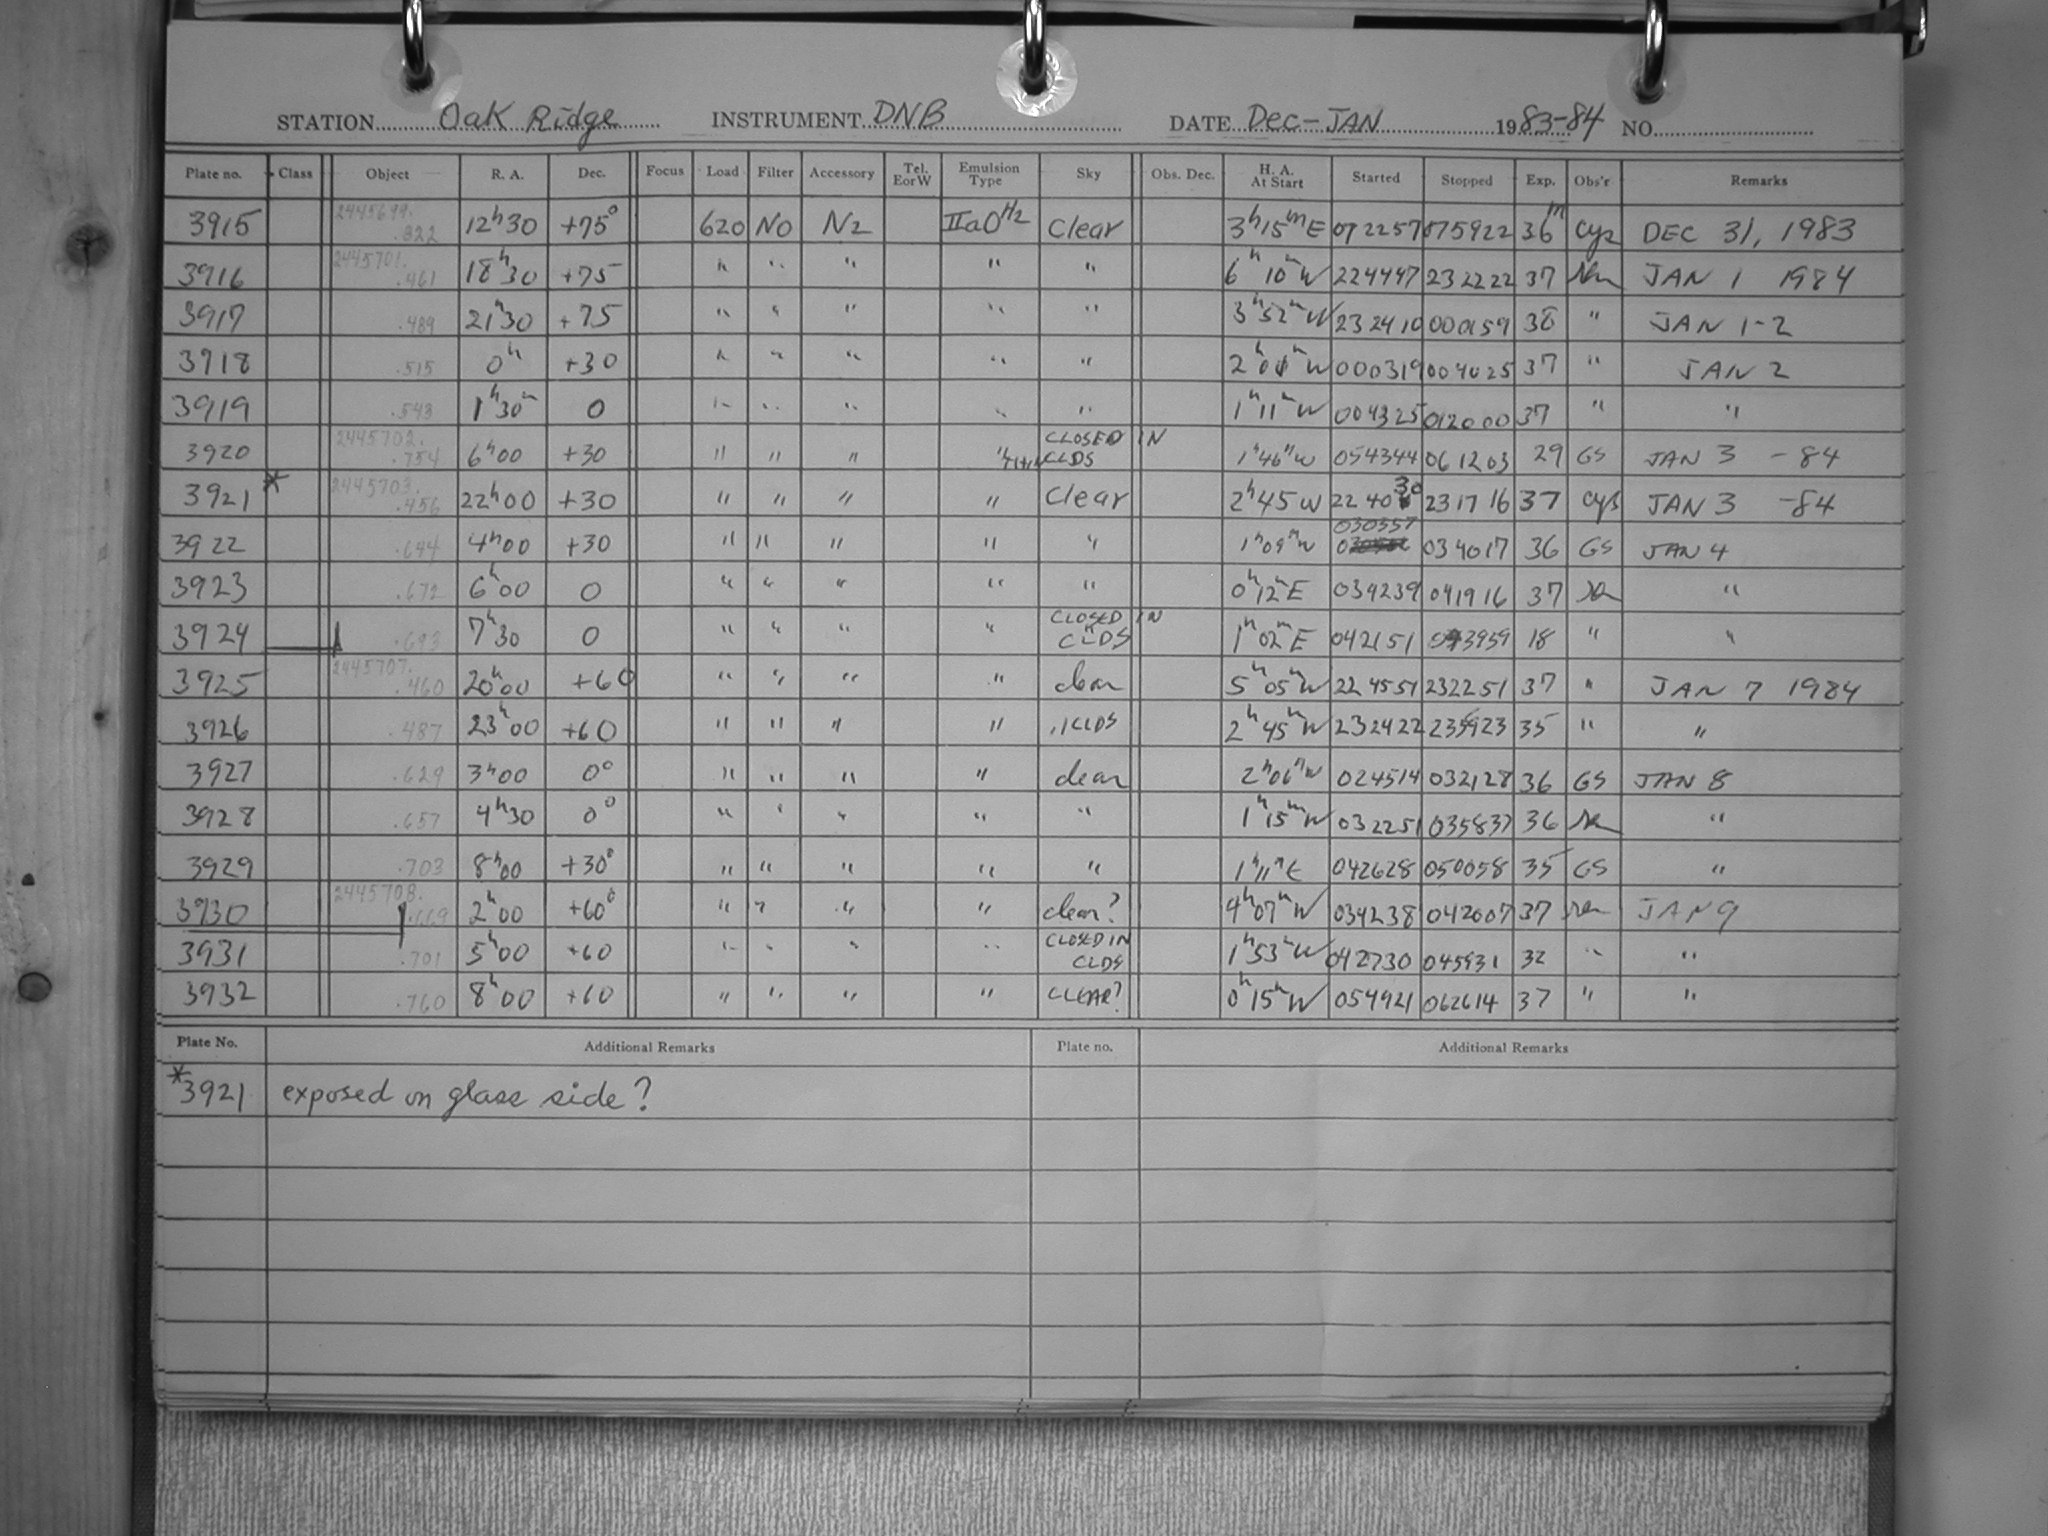 STATION Oak Ridge INSTRUMENT DNB DATE Dec-JAN 1983-84 NO.
Plate no. Class Object R. A. Dec. Focus Load Filter Accessory Tel. E or W Emulsion Type Sky Obs. Dec. H. A. At Start Started Stopped Exp. Obs'r Remarks
3915 2445699.822 12h30 +75° 620 No N2 IIaO H2 Clear 3h15mE 072257 075922 36m Cys DEC 31, 1983
3916 2445701.461 18h30 +75 " " " " " 6h10mW 224447 232222 37 JAN 1 1984
3917 .489 21h30 +75 " " " " " 3h52mW 232410 000159 38 " JAN 1-2
3918 .515 0h +30 " " " " " 2h W 000319 004025 37 " JAN 2
3919 .543 1h30m 0 " " " " " 1h11mW 004325 012000 37 " "
3920 2445702.754 6h00 +30 " " " " CLOSED IN CLDS 1h46mW 054344 061203 29 GS JAN 3 -84
3921 * 2445703.456 22h00 +30 " " " " Clear 2h45W 224030 231716 37 Cys JAN 3 -84
3922 .644 4h00 +30 " " " " " 1h09mW 030357 034017 36 GS JAN 4
3923 .672 6h00 0 " " " " " 0h12mE 034239 041916 37 "
3924 .693 7h30 0 " " " " CLOSED IN CLDS 1h02mE 042151 043959 18 " "
3925 2445707.460 20h00 +60 " " " " clear 5h05mW 224551 232251 37 " JAN 7 1984
3926 .487 23h00 +60 " " " " CLDS 2h45mW 232422 235923 35 " "
3927 .629 3h00 0° " " " " clear 2h06mW 024514 032128 36 GS JAN 8
3928 .657 4h30 0° " " " " " 1h15mW 032251 035837 36 "
3929 .703 8h00 +30° " " " " " 1h11mE 042628 050058 35 GS "
3930 2445708.669 2h00 +60° " " " " clear? 4h07mW 034238 042007 37 JAN 9
3931 .701 5h00 +60 " " " " CLOSED IN CLDS 1h53mW 042730 045931 32 " "
3932 .760 8h00 +60 " " " " CLEAR? 0h15mW 054921 062614 37 " "
Plate No. Additional Remarks Plate no. Additional Remarks
*3921 exposed on glass side?